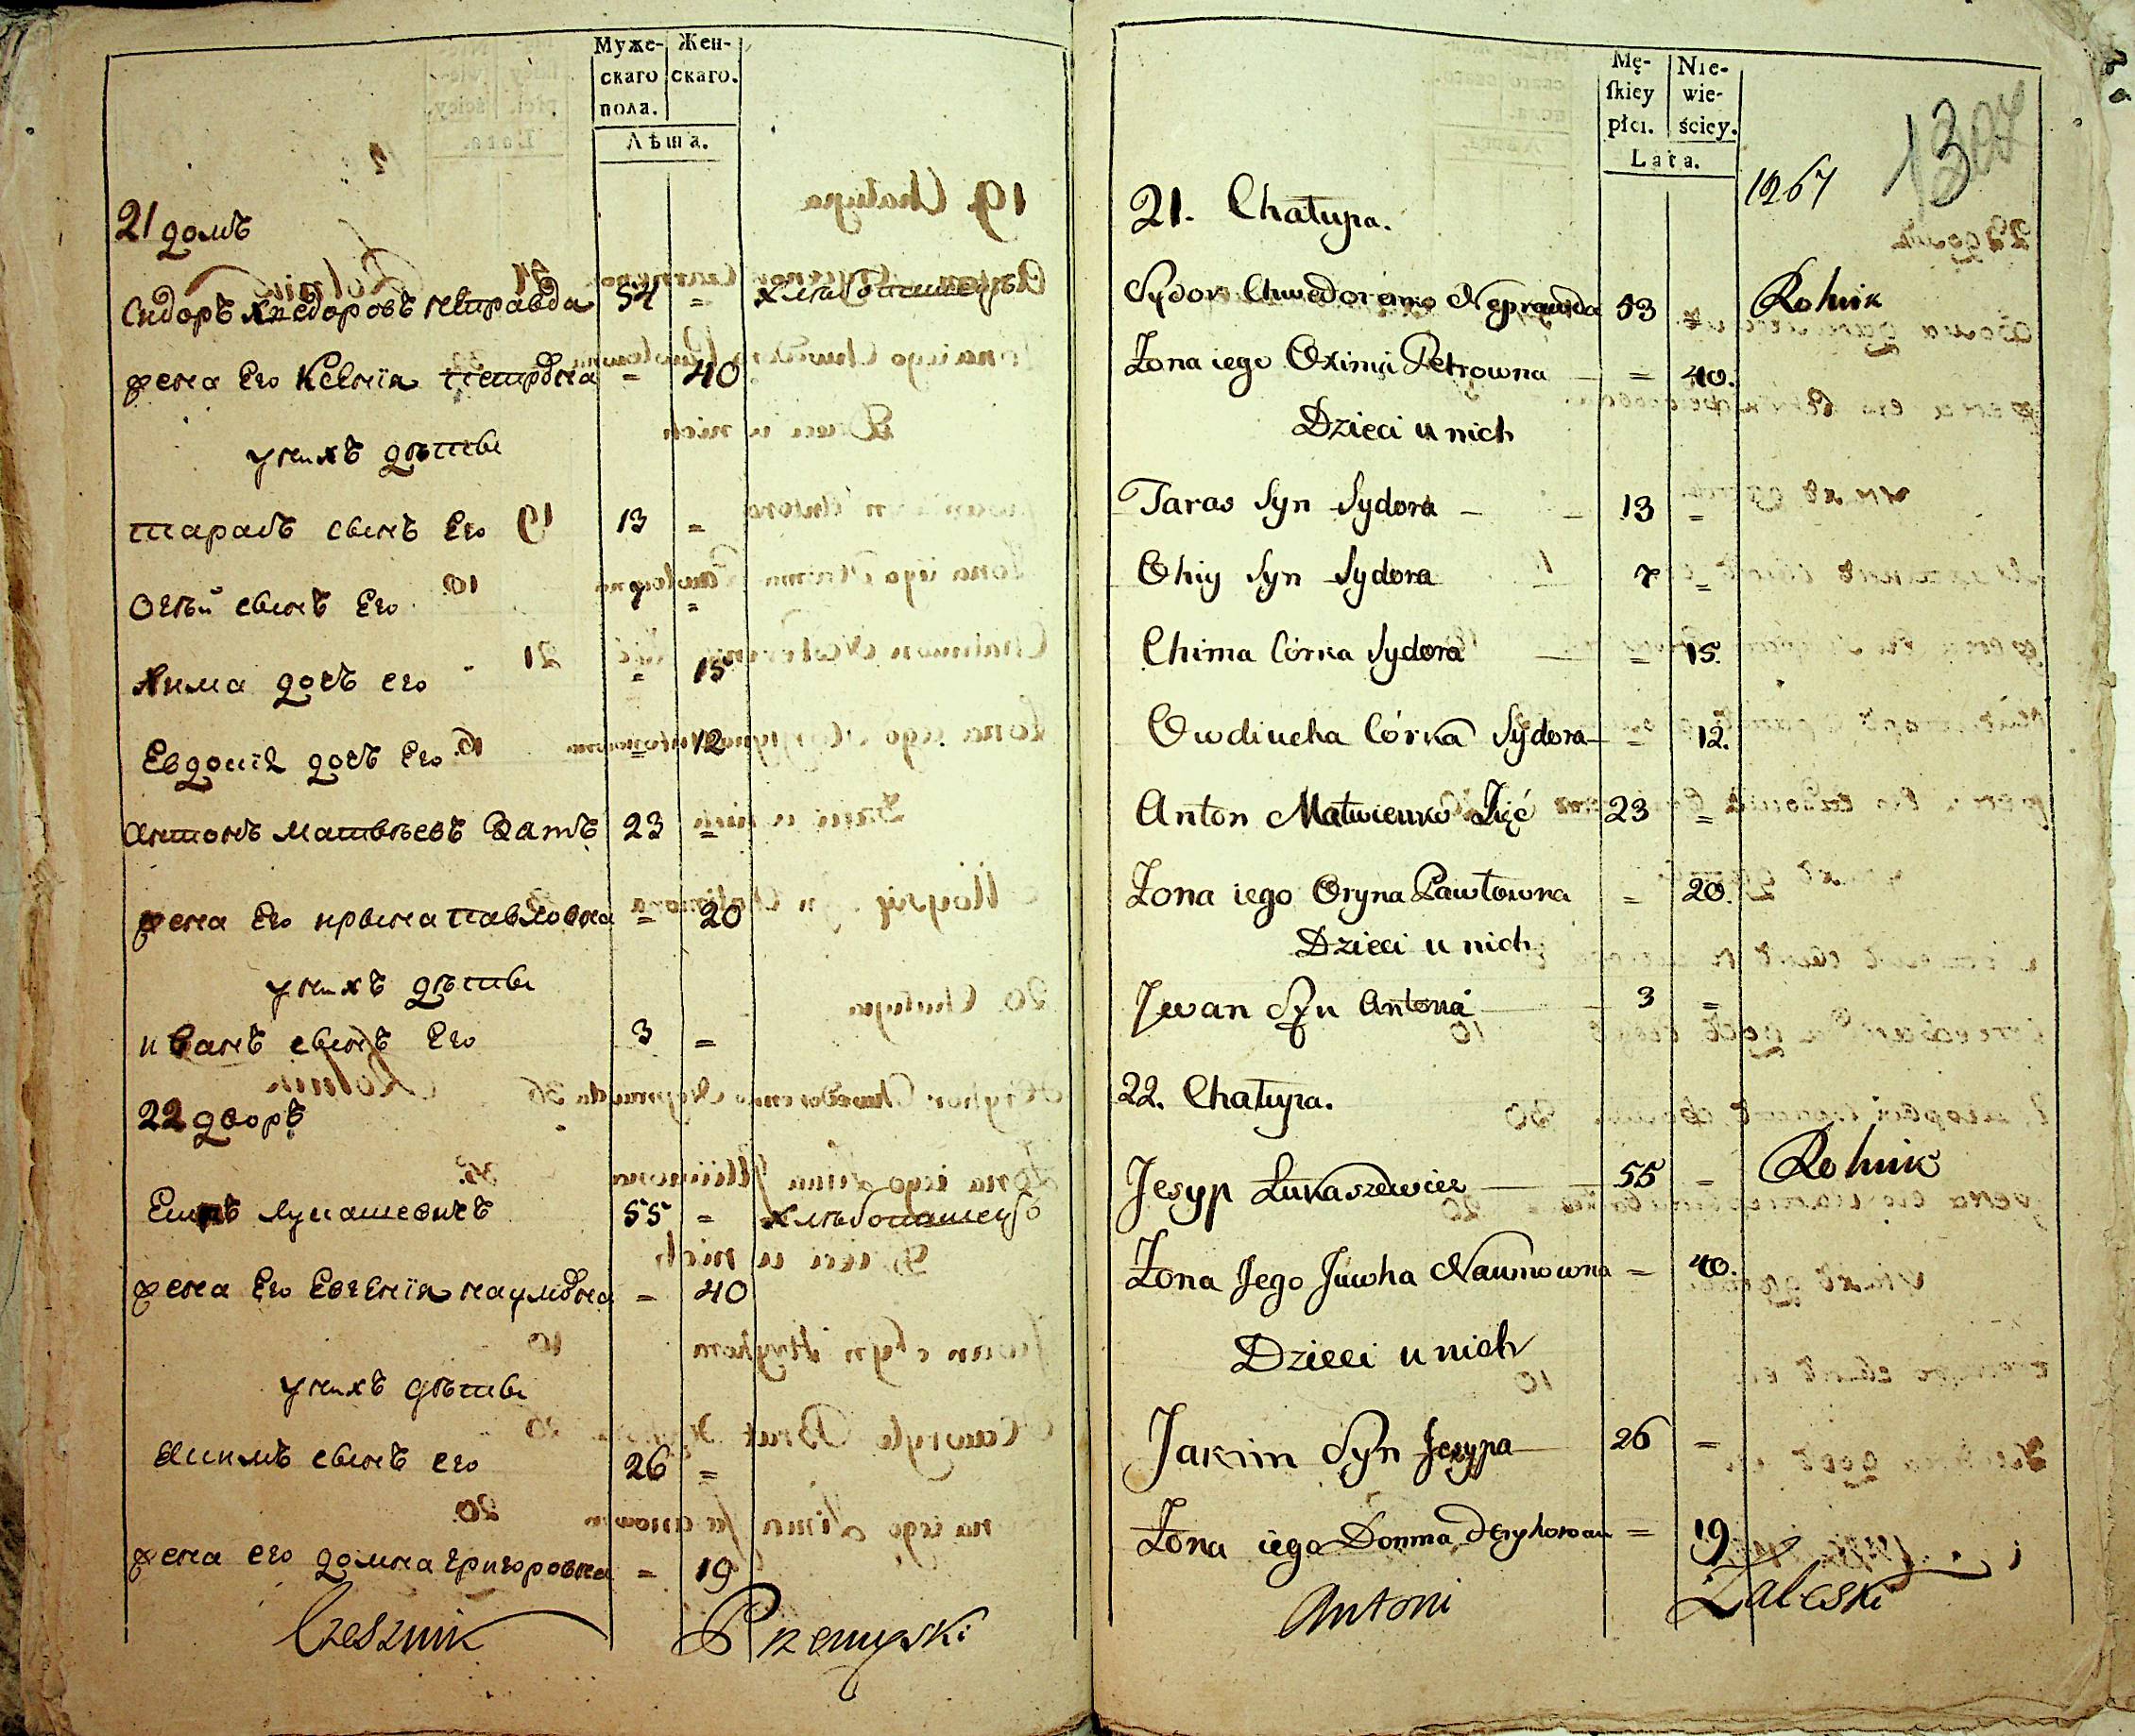 Муже-
скаго
пола.
Жен-
скаго.
Лѣта.
21 домъ
Сидоръ Хведоровъ Неправда 54 = хлѣбопашецъ
жена Его Ксенія Петровна = 40
у нихъ дѣти
Тарасъ сынъ Его 13 =
Огѣй сынъ Его 7 =
Хима дочь его = 15
Евдокія дочь Его = 12
Антонъ Матвѣевъ Зять 23 =
жена Его Ирына Павловна = 20
у нихъ дѣти
Иванъ сынъ Его 3 =
22 дворъ
Есипъ Лукашевичъ 55 = хлѣбопашецъ
жена Его Евгенія Наумовна = 40
у нихъ дѣти
Якимъ сынъ его 26 =
жена его Домна Григоровна = 19
Czesznik Przemyski
Mę-
ſkiey
płci.
Nie-
wie-
ściey.
Lata.
1267
21. Chałupa.
Sydor Chwedorenko Neprawda 53 = Rolnik
Żona iego Oximia Petrowna = 40.
Dzieci u nich
Taras Syn Sydora 13 =
Ohiy Syn Sydora 7 =
Chima Córka Sydora = 15.
Owdiucha Córka Sydora = 12.
Anton Matwienko Zięć 23 =
Żona iego Oryna Pawłowna = 20.
Dzieci u nich
Jwan Syn Antona 3 =
22. Chałupa.
Jesyp Łukaszewicz 55 = Rolnik
Żona Jego Juwha Naumowna = 40.
Dzieci u nich
Jakim Syn Jesypa 26 =
Żona iego Domna = 19
Antoni Zaleski